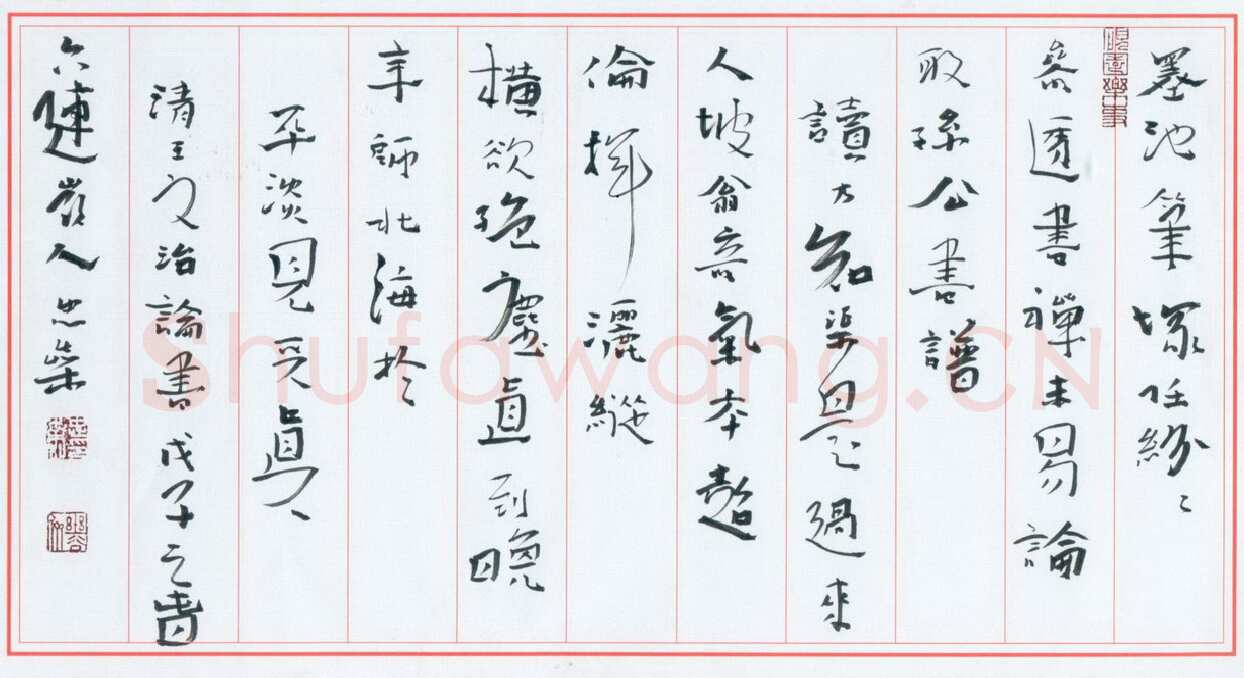 墨池筆塚任紛〻
參透書禪未易論
取孫公書譜
讀方知渠是過來
人坡翁奇氣本超
倫揮灑縱
橫欲絕塵直到晚
年師北海於
平淡見天真
清王文治論書戊子之春
六連嶺人忠
Shufawang.CN